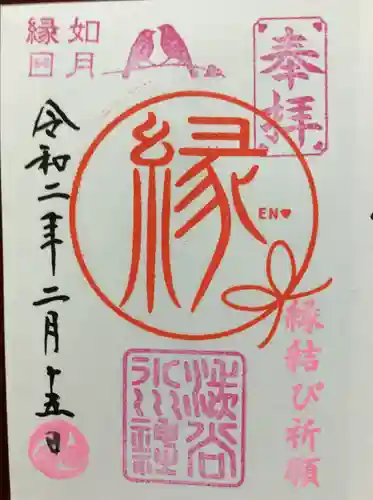 奉拝
縁結び祈願
縁
EN♥
渋谷
氷川神社
如月
縁日
令和二年二月十五日